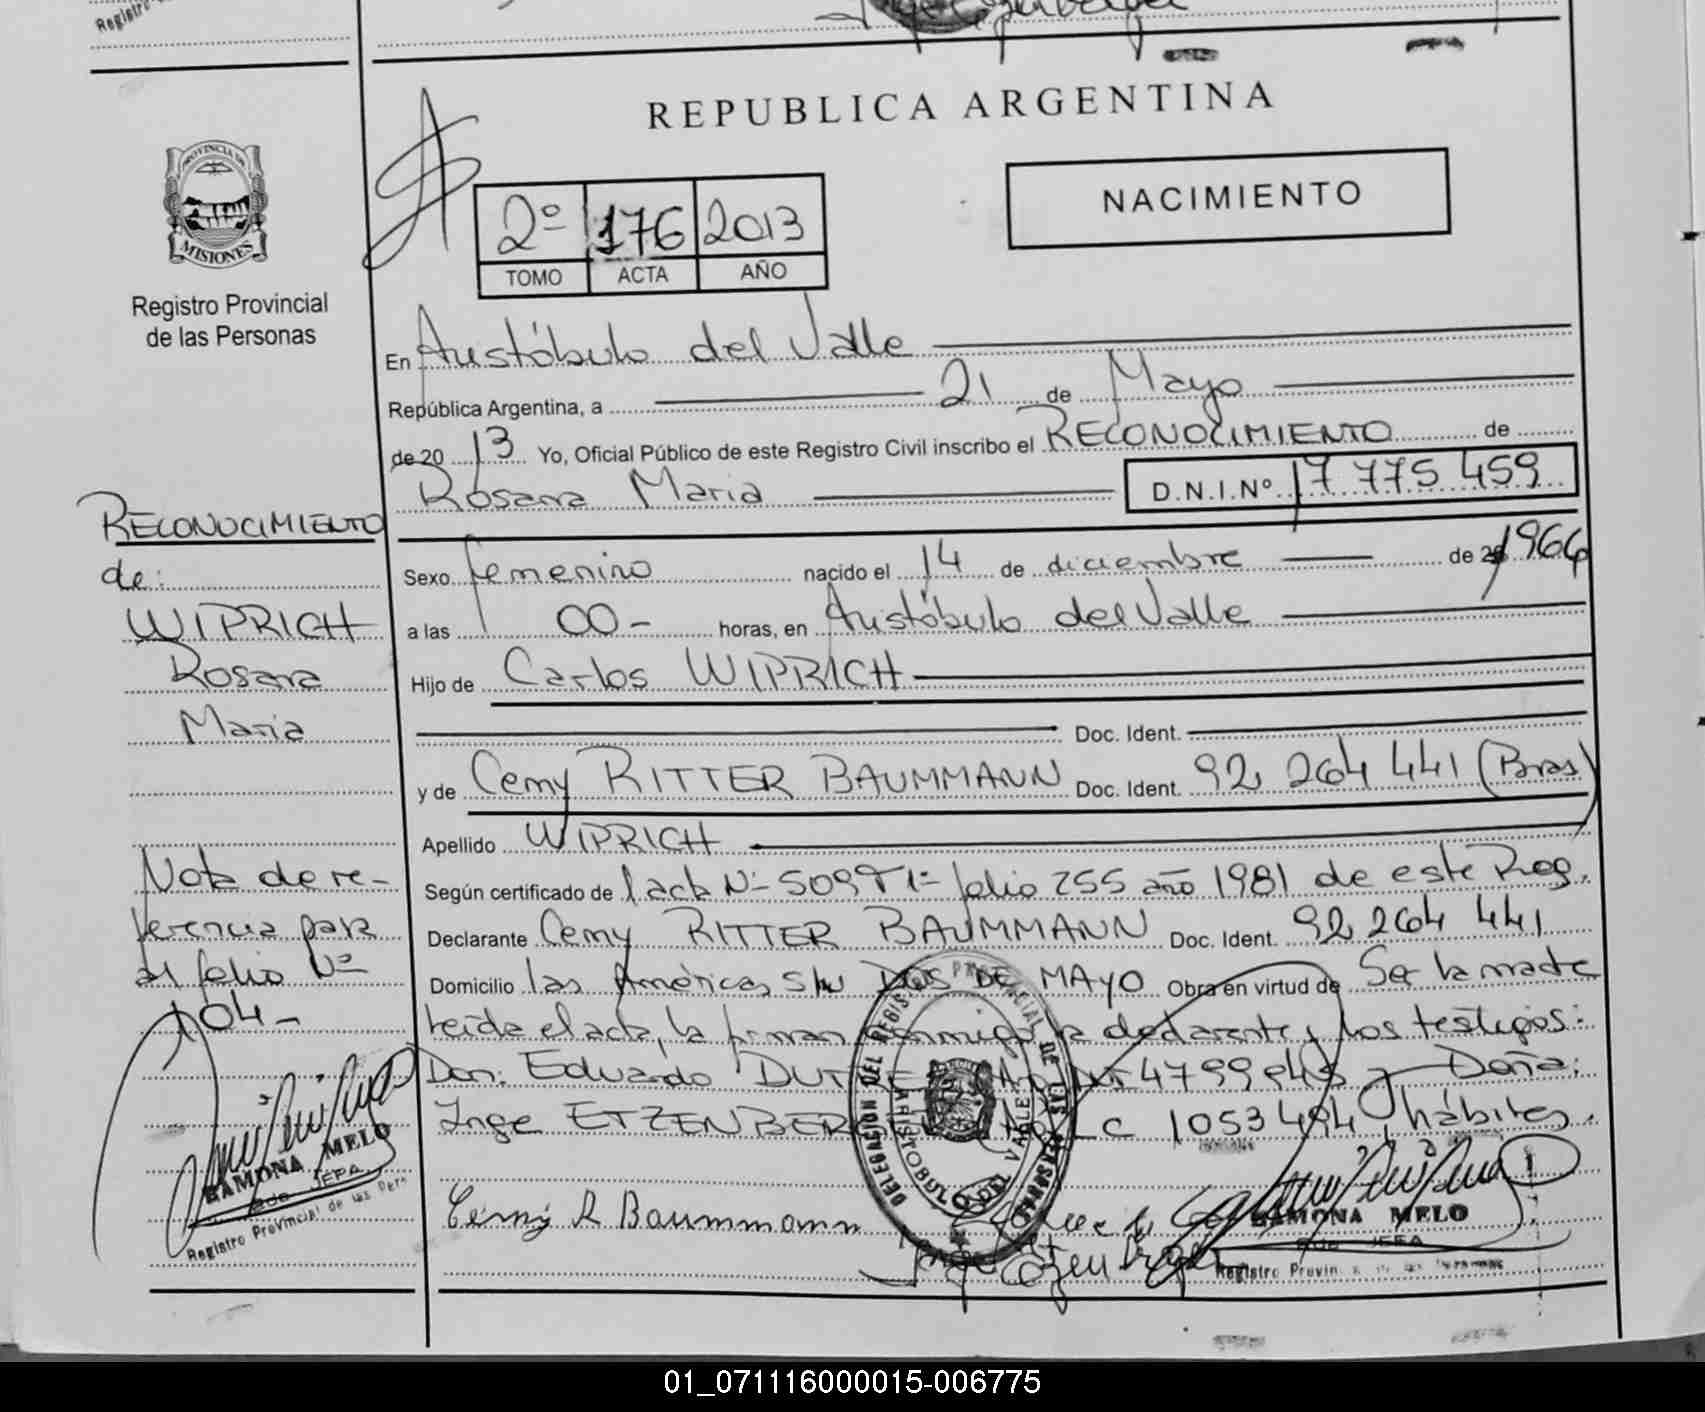 Registro
REPUBLICA ARGENTINA
PROVINCIA DE
MISIONES
Registro Provincial
de las Personas
2º 176 2013
TOMO ACTA AÑO
NACIMIENTO
En Aristóbulo del Valle
República Argentina, a 21 de Mayo
de 20 13 Yo, Oficial Público de este Registro Civil inscribo el RECONOCIMIENTO de
Rosana Maria D.N.I.Nº 17 775 459
Sexo femenino nacido el 14 de diciembre de 1966
a las 00- horas, en Aristóbulo del Valle
Hijo de Carlos WIPRICH
Doc. Ident.
y de Cemy RITTER BAUMMANN Doc. Ident. 92 264 441 (Bras)
Apellido WIPRICH
Según certificado de acta Nº 509 T 1º folio 255 año 1981 de este Reg.
Declarante Cemy RITTER BAUMMANN Doc. Ident. 92 264 441
Domicilio las Américas S/N DOS DE MAYO Obra en virtud de Ser la madre
leida el acta, la firman conmigo la declarante y los testigos:
Don: Eduardo Doña:
Inge LC 1053 494 hábiles.
Cemy R Baummann
RAMONA MELO
JEFA
Registro Provin
RECONOCIMIENTO
de:
WIPRICH
Rosana
Maria
Nota de re-
ferencia para
al folio Nº
104-
RAMONA MELO
JEFA
Registro Provincial de las Pers
DELEGACION DEL REGISTRO PROVINCIAL DE LAS PERSONAS
ARISTOBULO DEL VALLE
01_071116000015-006775